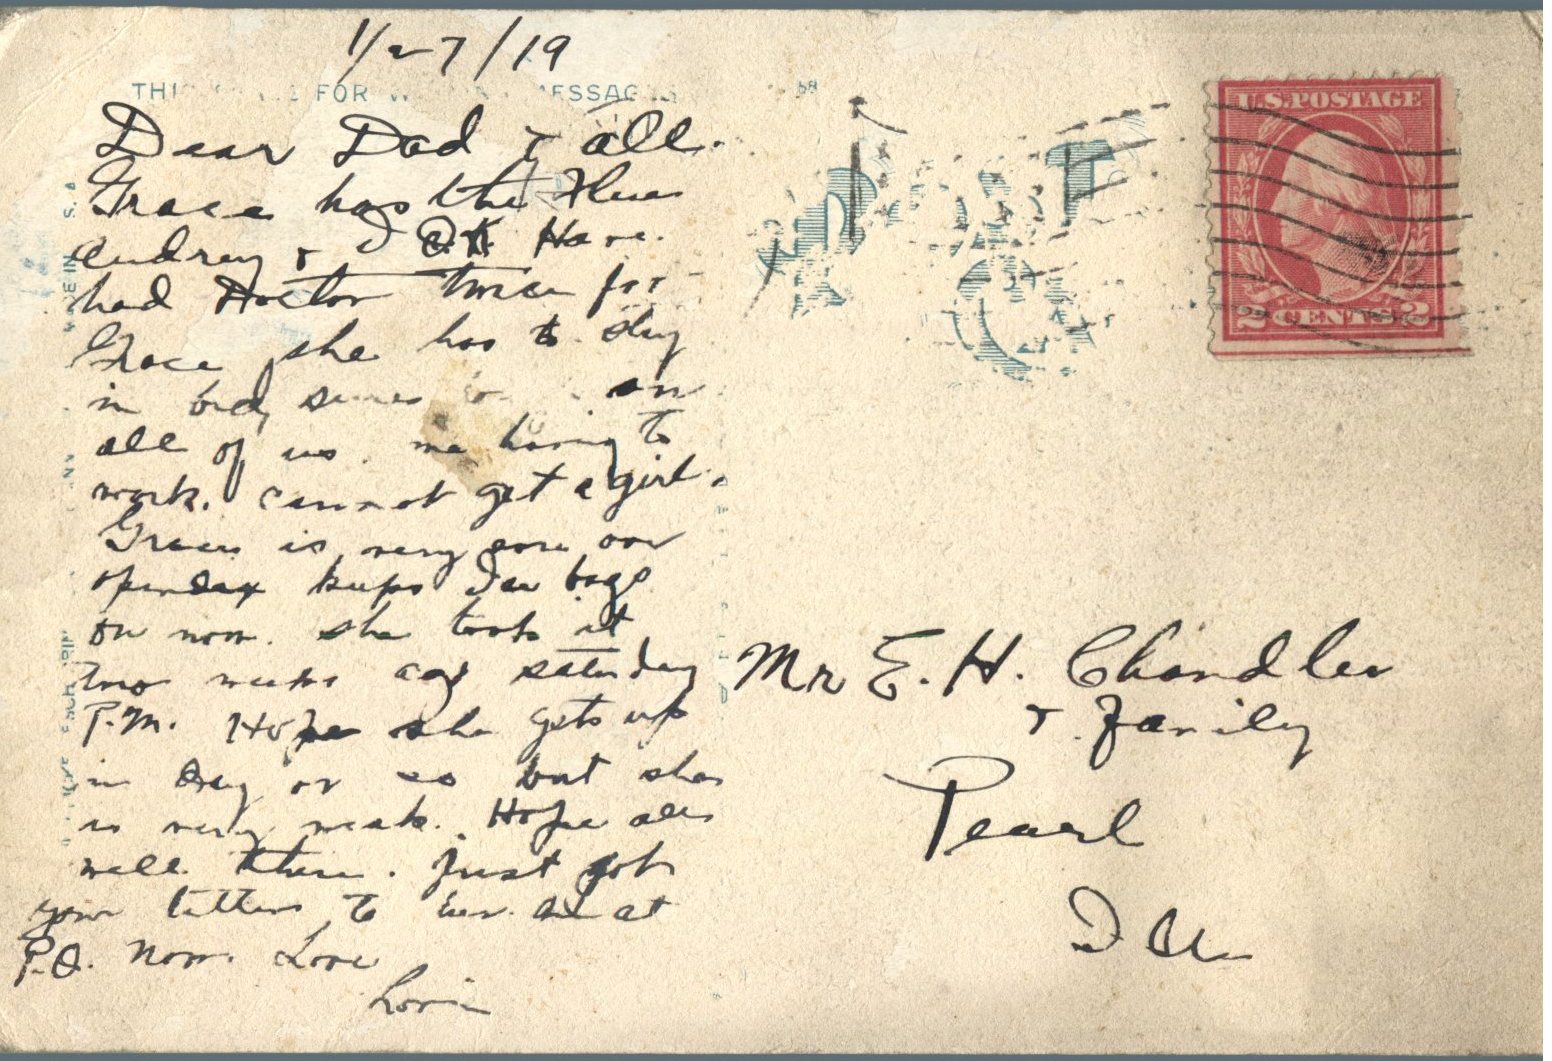 1/27/19
Dear Dad & all.
Grace has the Flue
Audrey & I O.K Have
had Doctor twice for
Grace she has to stay
in bed, on
all of us. me having to
work. cannot get a girl.
Grace is very sore over
keeps Ice bags
on now. she took it
two weeks ago saturday
P.M. Hope she gets up
in day or so but she
is very weak. Hope all
well there. Just got
your letters to at
P.O. now. Love
Lorin
U.S. POSTAGE
2 CENTS 2
Mr E. H. Chandler
& Family
Pearl
Ill